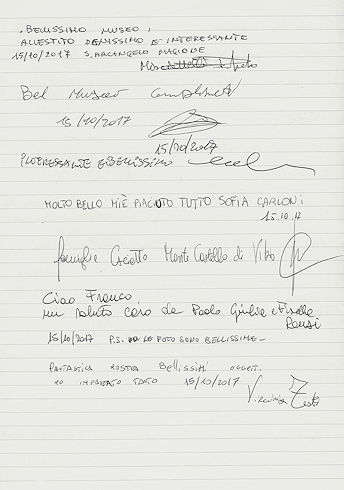 .BELLISSIMO MUSEO,
ALLESTITO BENISSIMO E INTERESSANTE
15/10/2017 S. ARCANGELO MAGIONE
Bel Museo Complimenti
15/10/2017
15/10/2017
INTERESSANTE E BELLISSIMO
MOLTO BELLO MI È PIACIUTO TUTTO SOFIA CARLONI
15.10.17
famiglia Monte Castello di Vibio
Ciao Franco,
un saluto caro da Paola Giulia e
15/10/2017 P.S. LE FOTO SONO BELLISSIME-
FANTASTICA MOSTRA Bellissimi OGGETTI.
HO IMPARATO TANTO 15/10/2017
Virginia